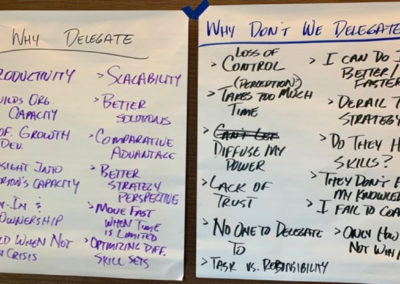 WHY DELEGATE
RODUCTIVITY
UILDS ORG.
CAPACITY
OF. GROWTH
DEV.
SIGHT INTO
ERSON'S CAPACITY
Y-IN &
OWNERSHIP
LD WHEN NOT
N CRISIS
> SCALABILITY
> BETTER
SOLUTIONS
> COMPARATIVE
ADVANTAGE
> BETTER
STRATEGY
PERSPECTIVE
> MOVE FAST
WHEN TIME
IS LIMITED
> OPTIMIZING DIFF.
SKILL SETS
WHY DON'T WE DELEGATE
> LOSS OF
CONTROL
(PERCEPTION?)
> TAKES TOO MUCH
TIME
> CAN'T LET
DIFFUSE MY
POWER
> LACK OF
TRUST
> NO ONE TO DELEGATE
TO
> TASK VS. RESPONSIBILITY
> I CAN DO I
BETTER/
FASTER
> DERAIL T
STRATEGY
> DO THEY H
SKILLS?
> THEY DON'T H
MY KNOWLED
> I FAIL TO COA
> ONLY HOW
NOT WH